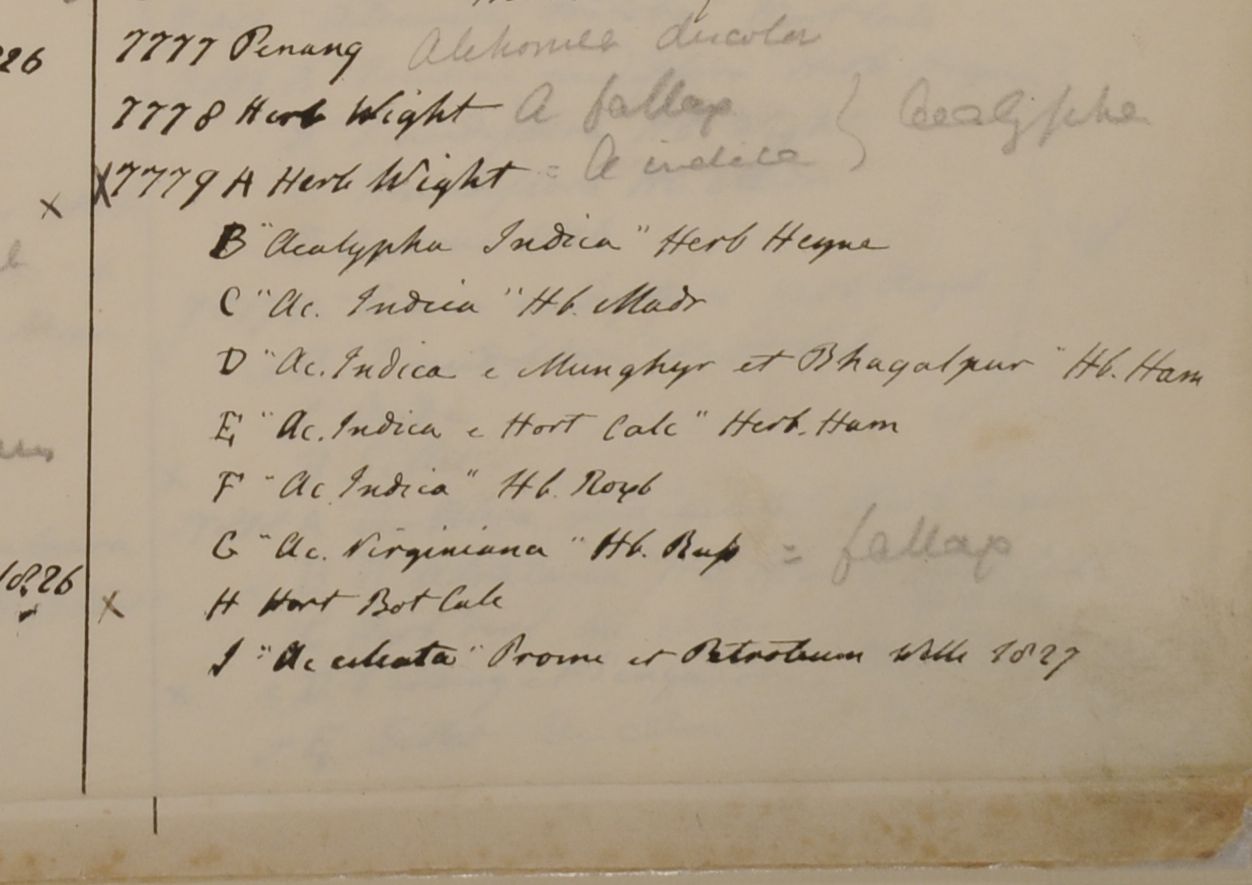 26
7777 Penang Alchornea discolor
7778 Herb Wight A fallax } Acalypha
X 7779 A Herb Wight = A indica
x
B "Acalypha Indica" Herb Heyne
C "Ac. Indica" Hb. Madr
D "Ac. Indica e Munghyr et Bhagalpur" Hb. Ham
E "Ac. Indica e Hort Calc" Herb. Ham
F "Ac. Indica" Hb. Roxb
G "Ac. Virginiana" Hb. = fallax
1826 x H Hort Bot Calc
I "Ac Prome et Petroleum Wells 1827